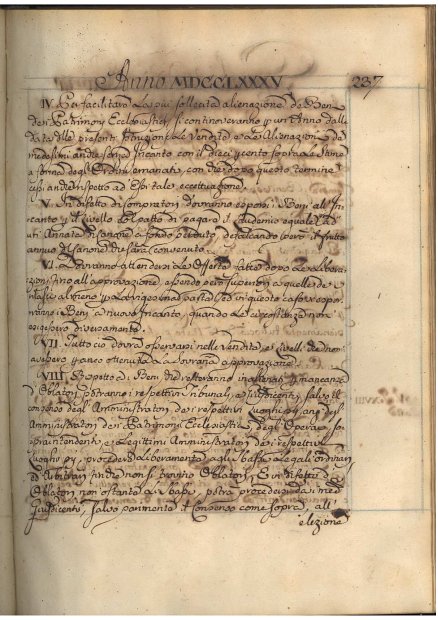 Anno MDCCLXXXV
237
IV. Per facilitare la più sollecita alienazione de Beni
de Patrimonj Ecclesiastici si continoveranno per un anno dalla
data delle presenti Istruzioni le Vendite e le Alienazioni de
medesimi anche senza Incanto con il dieci per cento sopra la Stima
a forma degli Ordini emanati, con che dopo questo termine
cessi anche rispetto ad Essi tale eccettuazione.
V. In difetto di Compratori dovranno esporsi i Beni all' In
canto per il Livello col patto di pagare il Laudemio equale
Annate di Canone a fondo perduto, defalcando però il frutto
annuo dal Canone che sarà convenuto.
VI. Dovranno attendersi le Offerte fatte dopo la Libera
zione fino all' approvazione, essendo però superiori a quelle de
almeno per la vigesima parte, ed in questo caso si espor
ranno i Beni a nuovo Incanto, quando le circostanze non
esigessero diversamente.
VII. Tutto ciò dovrà osservarsi nelle Vendite, e Livelli che non
avessero per anco ottenuta la Sovrana approvazione.
VIII. Rispetto ai Beni che resteranno inalienati per mancanza
d' Oblatori potranno i respettivi Tribunali, e Giusdicenti, salvo il
Consenso degl' Amministratori dei respettivi Luoghi pij, anzi degl'
Amministratori dei Patrimonj Ecclesiastici, degl' Operaj, So
praintendenti, e Legittimi Amministratori dei respettivi
Luoghi pij, procedere liberamente agl' ordinarj
finchè non si trovino Oblatori, E in difetto di
Oblatori non ostante potrà procedersi da i med.
Giusdicenti, salvo parimente il Consenso come sopra, all'
elezione